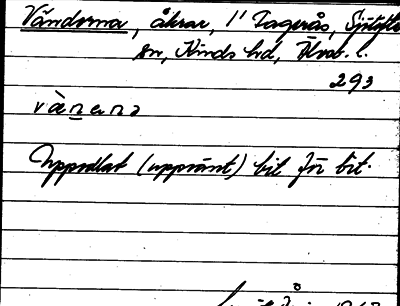 Vändorna, åkrar, i Tagerås,
sn, Kinds hd, Älvsb. l.
293
vä̀nena
Uppodlat (upprönt) bit för bit.